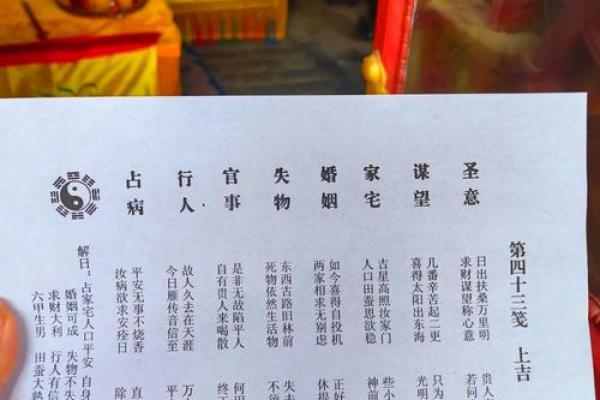 第四十三笺 上吉
圣意
日出扶桑万里明 贵人
求财谋望称心意 若问
谋望
几番辛苦起二更 喜
喜得太阳出东海 光明
家宅
吉星高照汝家门 些小
人口田蚕思欲稳 神前
婚姻
如今喜得自投机 正好
两家相求无别虑 休提
失物
东西古路旧林前 失去
死物依然生活物 不
官事
是非无故陷平人 何
自有贵人来喝散
行人
故人久去在天涯 万
今日雁传音信至 平
占病
平安无事不烧香 直
汝病欲求安痊日 除
解曰：占家宅人口平安 自身
婚姻可成 失物不失
求财大利 行人有信
六甲生男 田蚕大熟